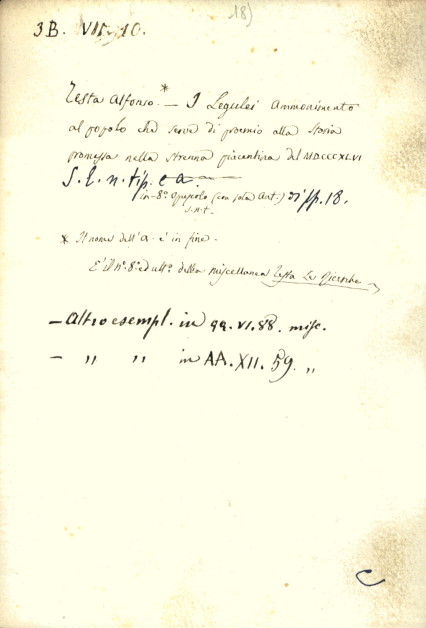 18)
3B. VII. 10.
Testa Alfonso * — I Legulei Ammonimento
al popolo che serve di proemio alla Storia
promessa nella strenna piacentina del MDCCCXLVI
S. l. n. tip. e a
in-8º Opuscolo (con sola Ant.) di pp. 18.
s.n.t.
* Il nome dell'A. è in fine.
È il nº 8º ed ultº della miscellanea Testa Le
— Altro esempl. in 99. VI. 88. misc.
— " " in AA. XII. 59. "
C